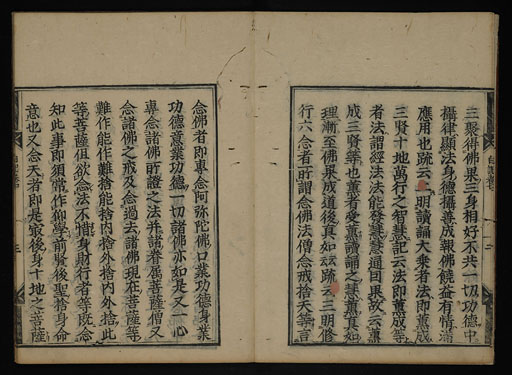 三聚得佛果三身相好不共一切功德中
攝律顯法身德攝善成報佛饒益有情滿
應用也疏云 明讀誦大乘者法即薰成
三賢十地萬行之智慧記云法即薰成等
者法謂經法法能發慧慧通因果故云薰
成三賢等也薰者受薰讀誦之慧薰真如
理漸至佛果成道後真如 疏云三明修
行六念者所謂念佛法僧念戒捨天等言
念佛者即專念阿弥陀佛口業功德身業
功德意業功德一切諸佛亦如是又一心
專念諸佛所證之法并諸眷屬菩薩僧又
念諸佛之戒及念過去諸佛現在菩薩等
難作能作難捨能捨內捨外捨內外捨此
等菩薩但欲念法不惜身財行者等既念
知此事即須常作仰學前賢後聖捨身命
意也又念天者即是寂後身十地之菩薩